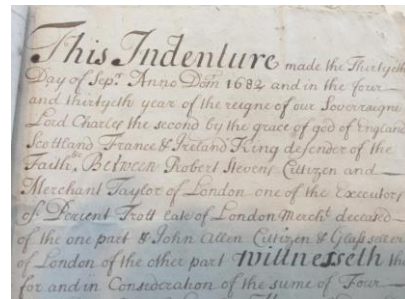 This Indenture made the Thirtyeth
Day of Sepr. Anno Dom 1682 and in the four—
and thirtyeth year of the reigne of our Soverraigne
Lord Charles the second by the grace of god of England
Scotland France & Ireland King defender of the
Faith &c Between Robert Stevens Cittizen and—
Merchant Taylor of London one of the Executors
of Percient Trott late of London Mercht. deceased—
of the one part & John Allen Cittizen & Glass seller
of London of the other part Wittnesseth tha
for and in Consideration of the sume of Four—